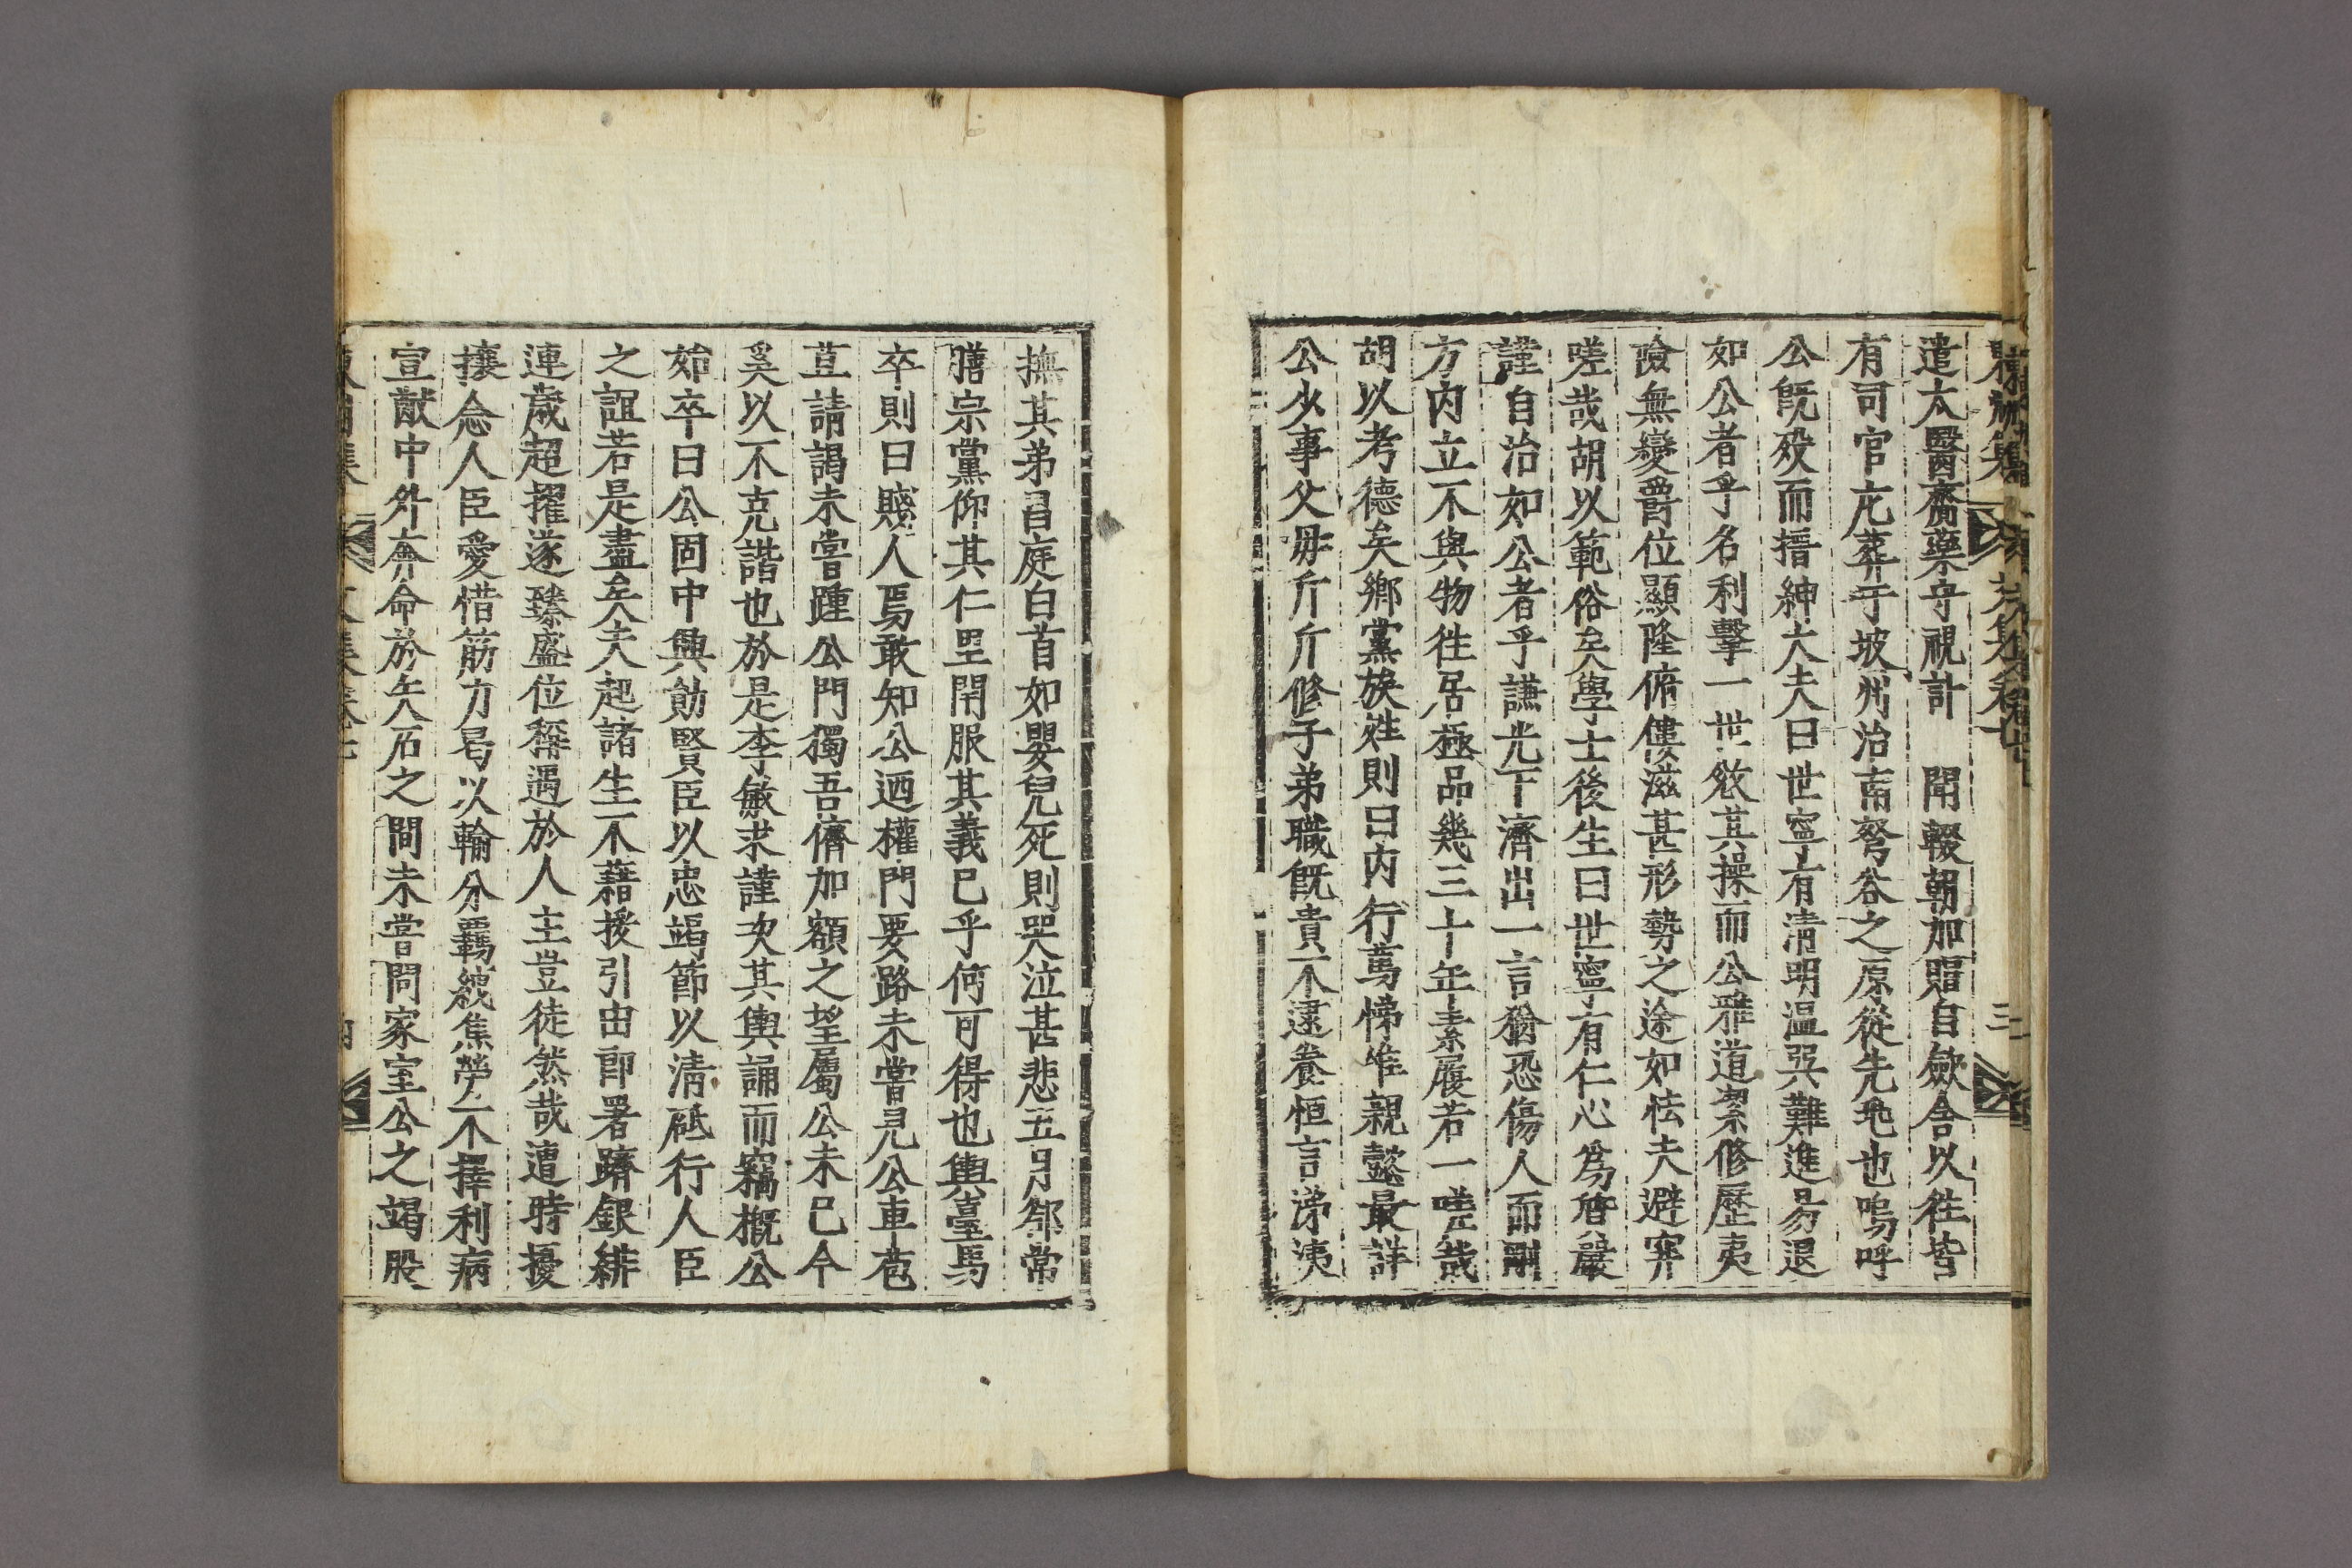 遣太醫齎藥守視訃 聞輟朝加賵自歛含以往皆
有司官庀葬于坡州治南弩谷之原從先兆也嗚呼
公旣歿而搢紳大夫曰世寧有淸明溫巽難進易退
如公者乎名利擊一世欲其操而公雅道潔修歷夷
險無變爵位顯隆俯僂滋甚形勢之途如怯夫避穽
嗟哉胡以範俗矣學士後生曰世寧有仁心爲質嚴
謹自治如公者乎謙光下濟出一言猶恐傷人而剛
方內立不與物徃居極品幾三十年素履若一嗟哉
胡以考德矣鄕黨族姓則曰內行篤悌惟親懿最詳
公少事父母斤斤修子弟職旣貴不逮養恒言涕洟
撫其弟眉庭白首如嬰兒死則哭泣甚悲五月鄕常
膳宗黨仰其仁里閈服其義已乎何可得也輿臺馬
卒則曰賤人焉敢知公迺權門要路未嘗見公車苞
苴請謁未嘗踵公門獨吾儕加額之望屬公未已今
奚以不克諧也於是李敏求謹次其輿誦而竊槪公
始卒曰公固中興勛賢臣以忠竭節以淸砥行人臣
之誼若是盡矣夫起諸生不藉援引由郞署躋銀緋
連歲超擢遂臻盛位際遇於人主豈徒然哉遭時擾
攘念人臣愛惜筋力曷以輸分羈紲焦勞不擇利病
宣猷中外奔命於矢石之間未嘗問家室公之竭股